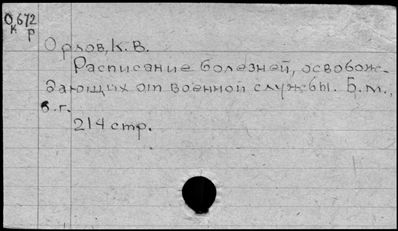 О,672
к р
Орлов, К. В.
Расписание болезней, освобож-
дающих от военной службы. Б. м.,
б. г.
214 стр.